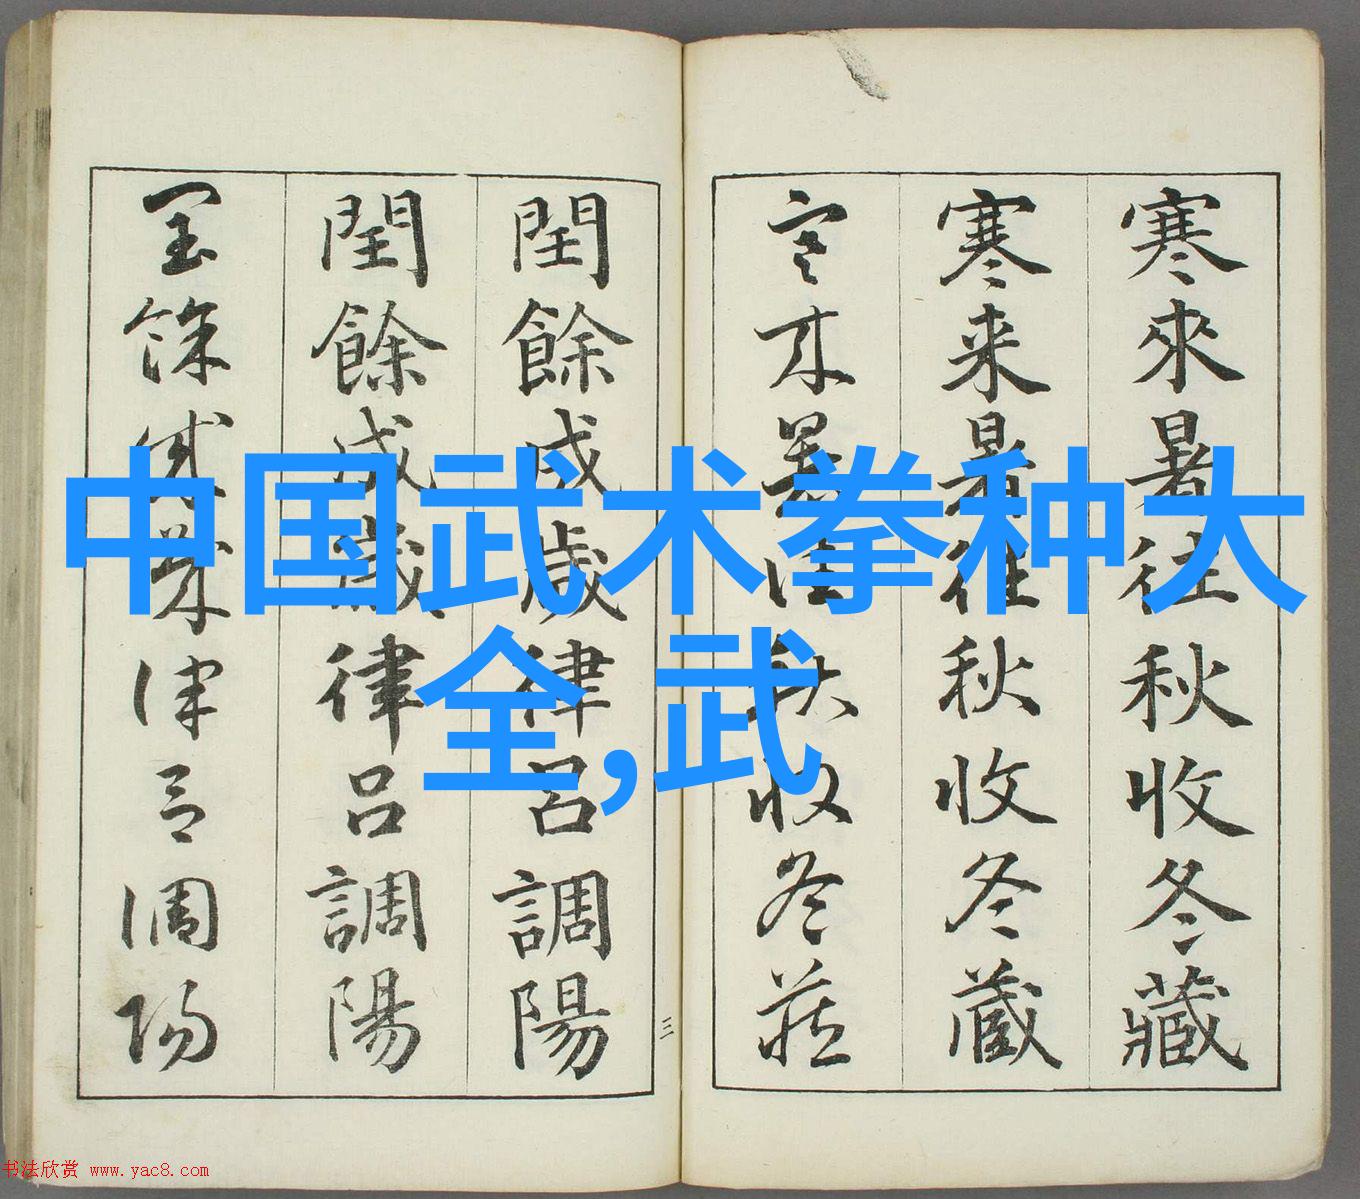 寒來暑往秋收冬藏
寒来暑往秋收冬蔵
寒来暑往秋收冬藏
閏餘成歲律呂調陽
閏餘成歲律呂調陽
閏餘成歲律呂調陽
三
中国武术拳种大
全,武
书法欣赏 www.yac8.com